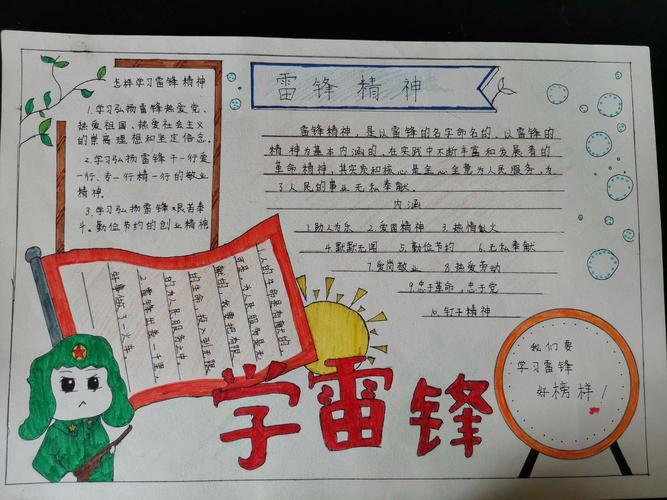 怎样学习雷锋精神
1.学习弘扬雷锋热爱党、
热爱祖国、热爱社会主义
的崇高理想和坚定信念。
2.学习弘扬雷锋干一行爱
一行、专一行精一行的敬业
精神。
3.学习弘扬雷锋艰苦奉
斗、勤位节约的创业精神
雷锋精神
雷锋精神,是以雷锋的名字命名的,以雷锋的
精神为基本内涵的,在实践中不断丰富和发展着的
革命精神,其实质和核心是全心全意为人民服务,为
了人民的事业无私奉献。
内涵
1.助人为乐 2.爱国精神 3.热情似火
4.默默无闻 5.勤位节约 6.无私奉献
7.爱岗敬业 8.热爱劳动
9.忠于革命,忠于党
10.钉子精神
1.人的生命是有限的
可是,为人民服务是无
限的,我要把有限
的生命,投入到无限
的为人民服务之中
2.雷锋出差一千里
好事做了一火车
学雷锋
我们要
学习雷锋
好榜样!